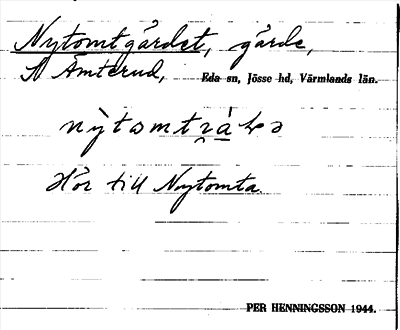 Nytomtgärdet, gärde,
N Ämterud, Eda sn, Jösse hd, Värmlands län.
Hör till Nytomta
PER HENNINGSSON 1944.